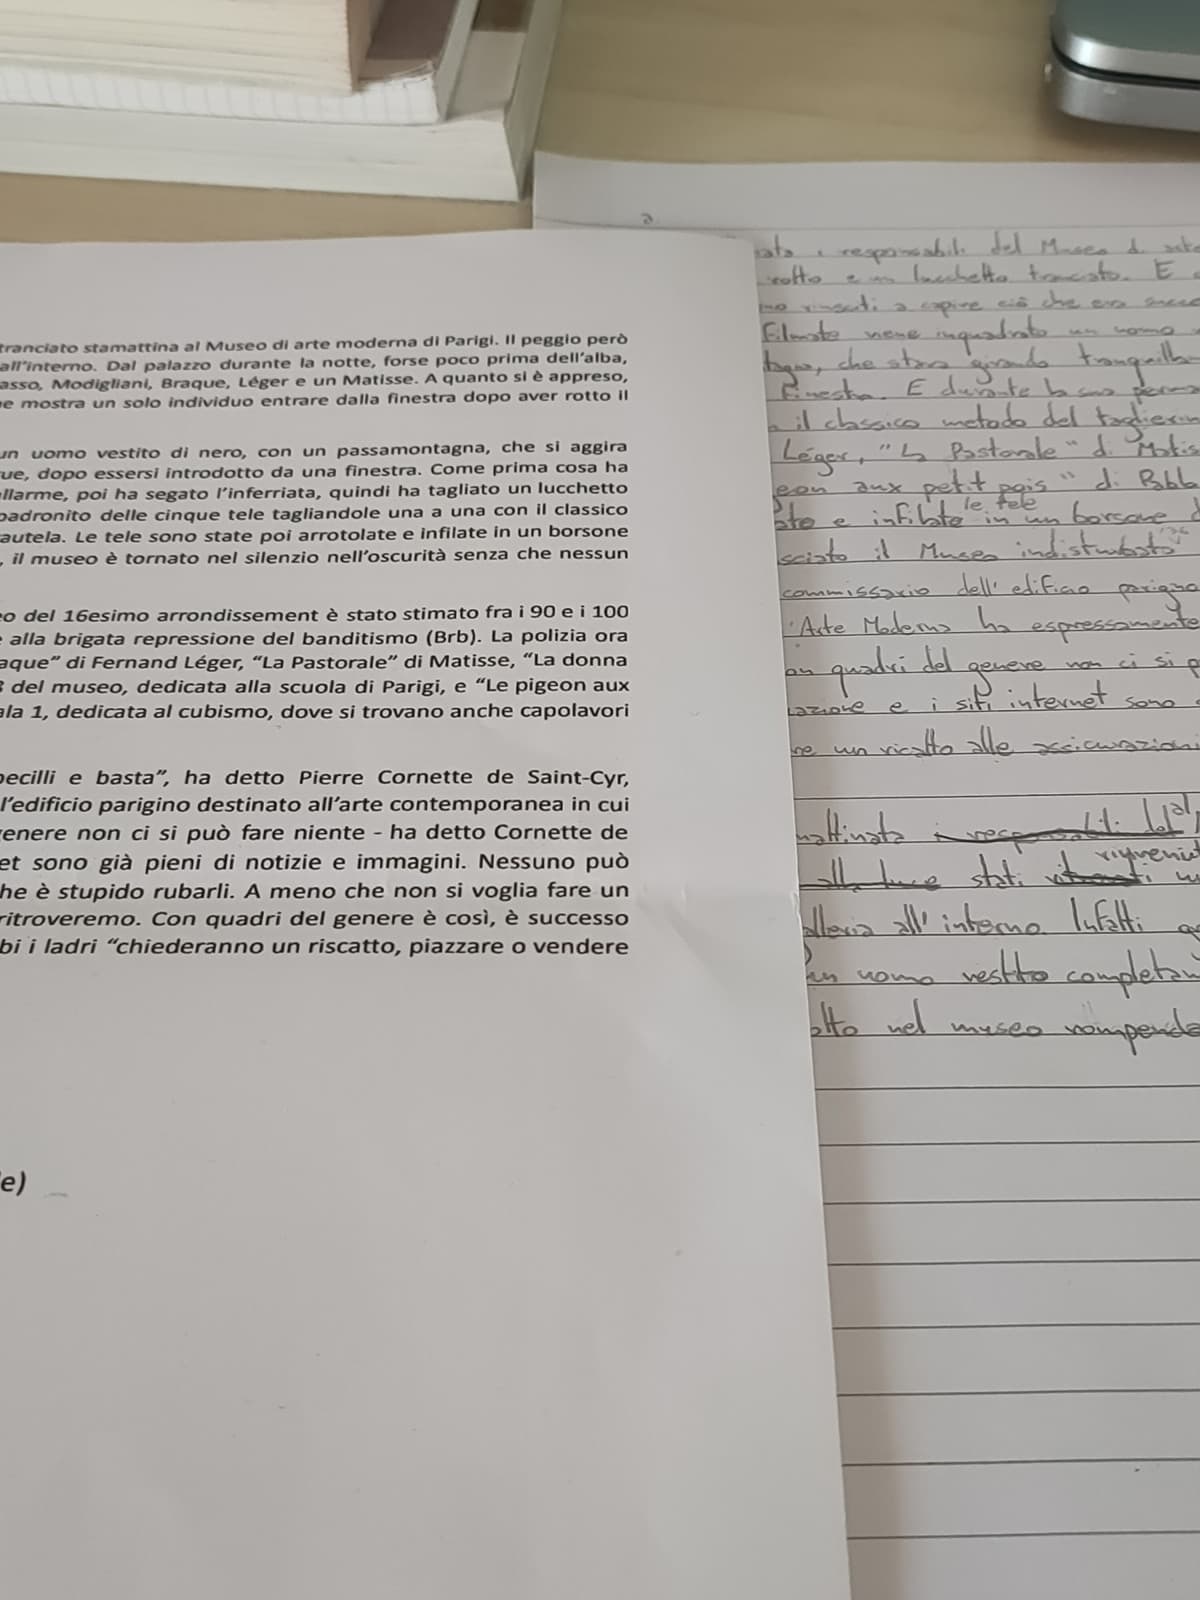 tranciato stamattina al Museo di arte moderna di Parigi. Il peggio però
all'interno. Dal palazzo durante la notte, forse poco prima dell'alba,
asso, Modigliani, Braque, Léger e un Matisse. A quanto si è appreso,
e mostra un solo individuo entrare dalla finestra dopo aver rotto il
un uomo vestito di nero, con un passamontagna, che si aggira
ue, dopo essersi introdotto da una finestra. Come prima cosa ha
llarme, poi ha segato l'inferriata, quindi ha tagliato un lucchetto
padronito delle cinque tele tagliandole una a una con il classico
autela. Le tele sono state poi arrotolate e infilate in un borsone
, il museo è tornato nel silenzio nell'oscurità senza che nessun
eo del 16esimo arrondissement è stato stimato fra i 90 e i 100
e alla brigata repressione del banditismo (Brb). La polizia ora
aque" di Fernand Léger, "La Pastorale" di Matisse, "La donna
3 del museo, dedicata alla scuola di Parigi, e "Le pigeon aux
ala 1, dedicata al cubismo, dove si trovano anche capolavori
becilli e basta", ha detto Pierre Cornette de Saint-Cyr,
l'edificio parigino destinato all'arte contemporanea in cui
genere non ci si può fare niente - ha detto Cornette de
et sono già pieni di notizie e immagini. Nessuno può
he è stupido rubarli. A meno che non si voglia fare un
ritroveremo. Con quadri del genere è così, è successo
bi i ladri "chiederanno un riscatto, piazzare o vendere
e)
ata i responsabili del Museo di arte
rotto e un lucchetto tranciato. E
no riusciti a capire ciò che era
filmato viene inquadrato un uomo
che stava girando
finestra. E durante la sua
il classico metodo del taglierin
Léger, "La Pastorale" di Matis
eon aux petit pois" di Pabl
le tele
ato e infilato in un borsone
sciato il Museo indisturbato
commissario dell'edificio parigino
Arte Moderna ha espressamente
on quadri del genere non ci si p
lazione e i siti internet sono
re un ricatto alle assicurazioni
mattinata i responsabili del al
alla luce stati
allevia all'interno. Infatti
un uomo vestito completam
olto nel museo rompendo